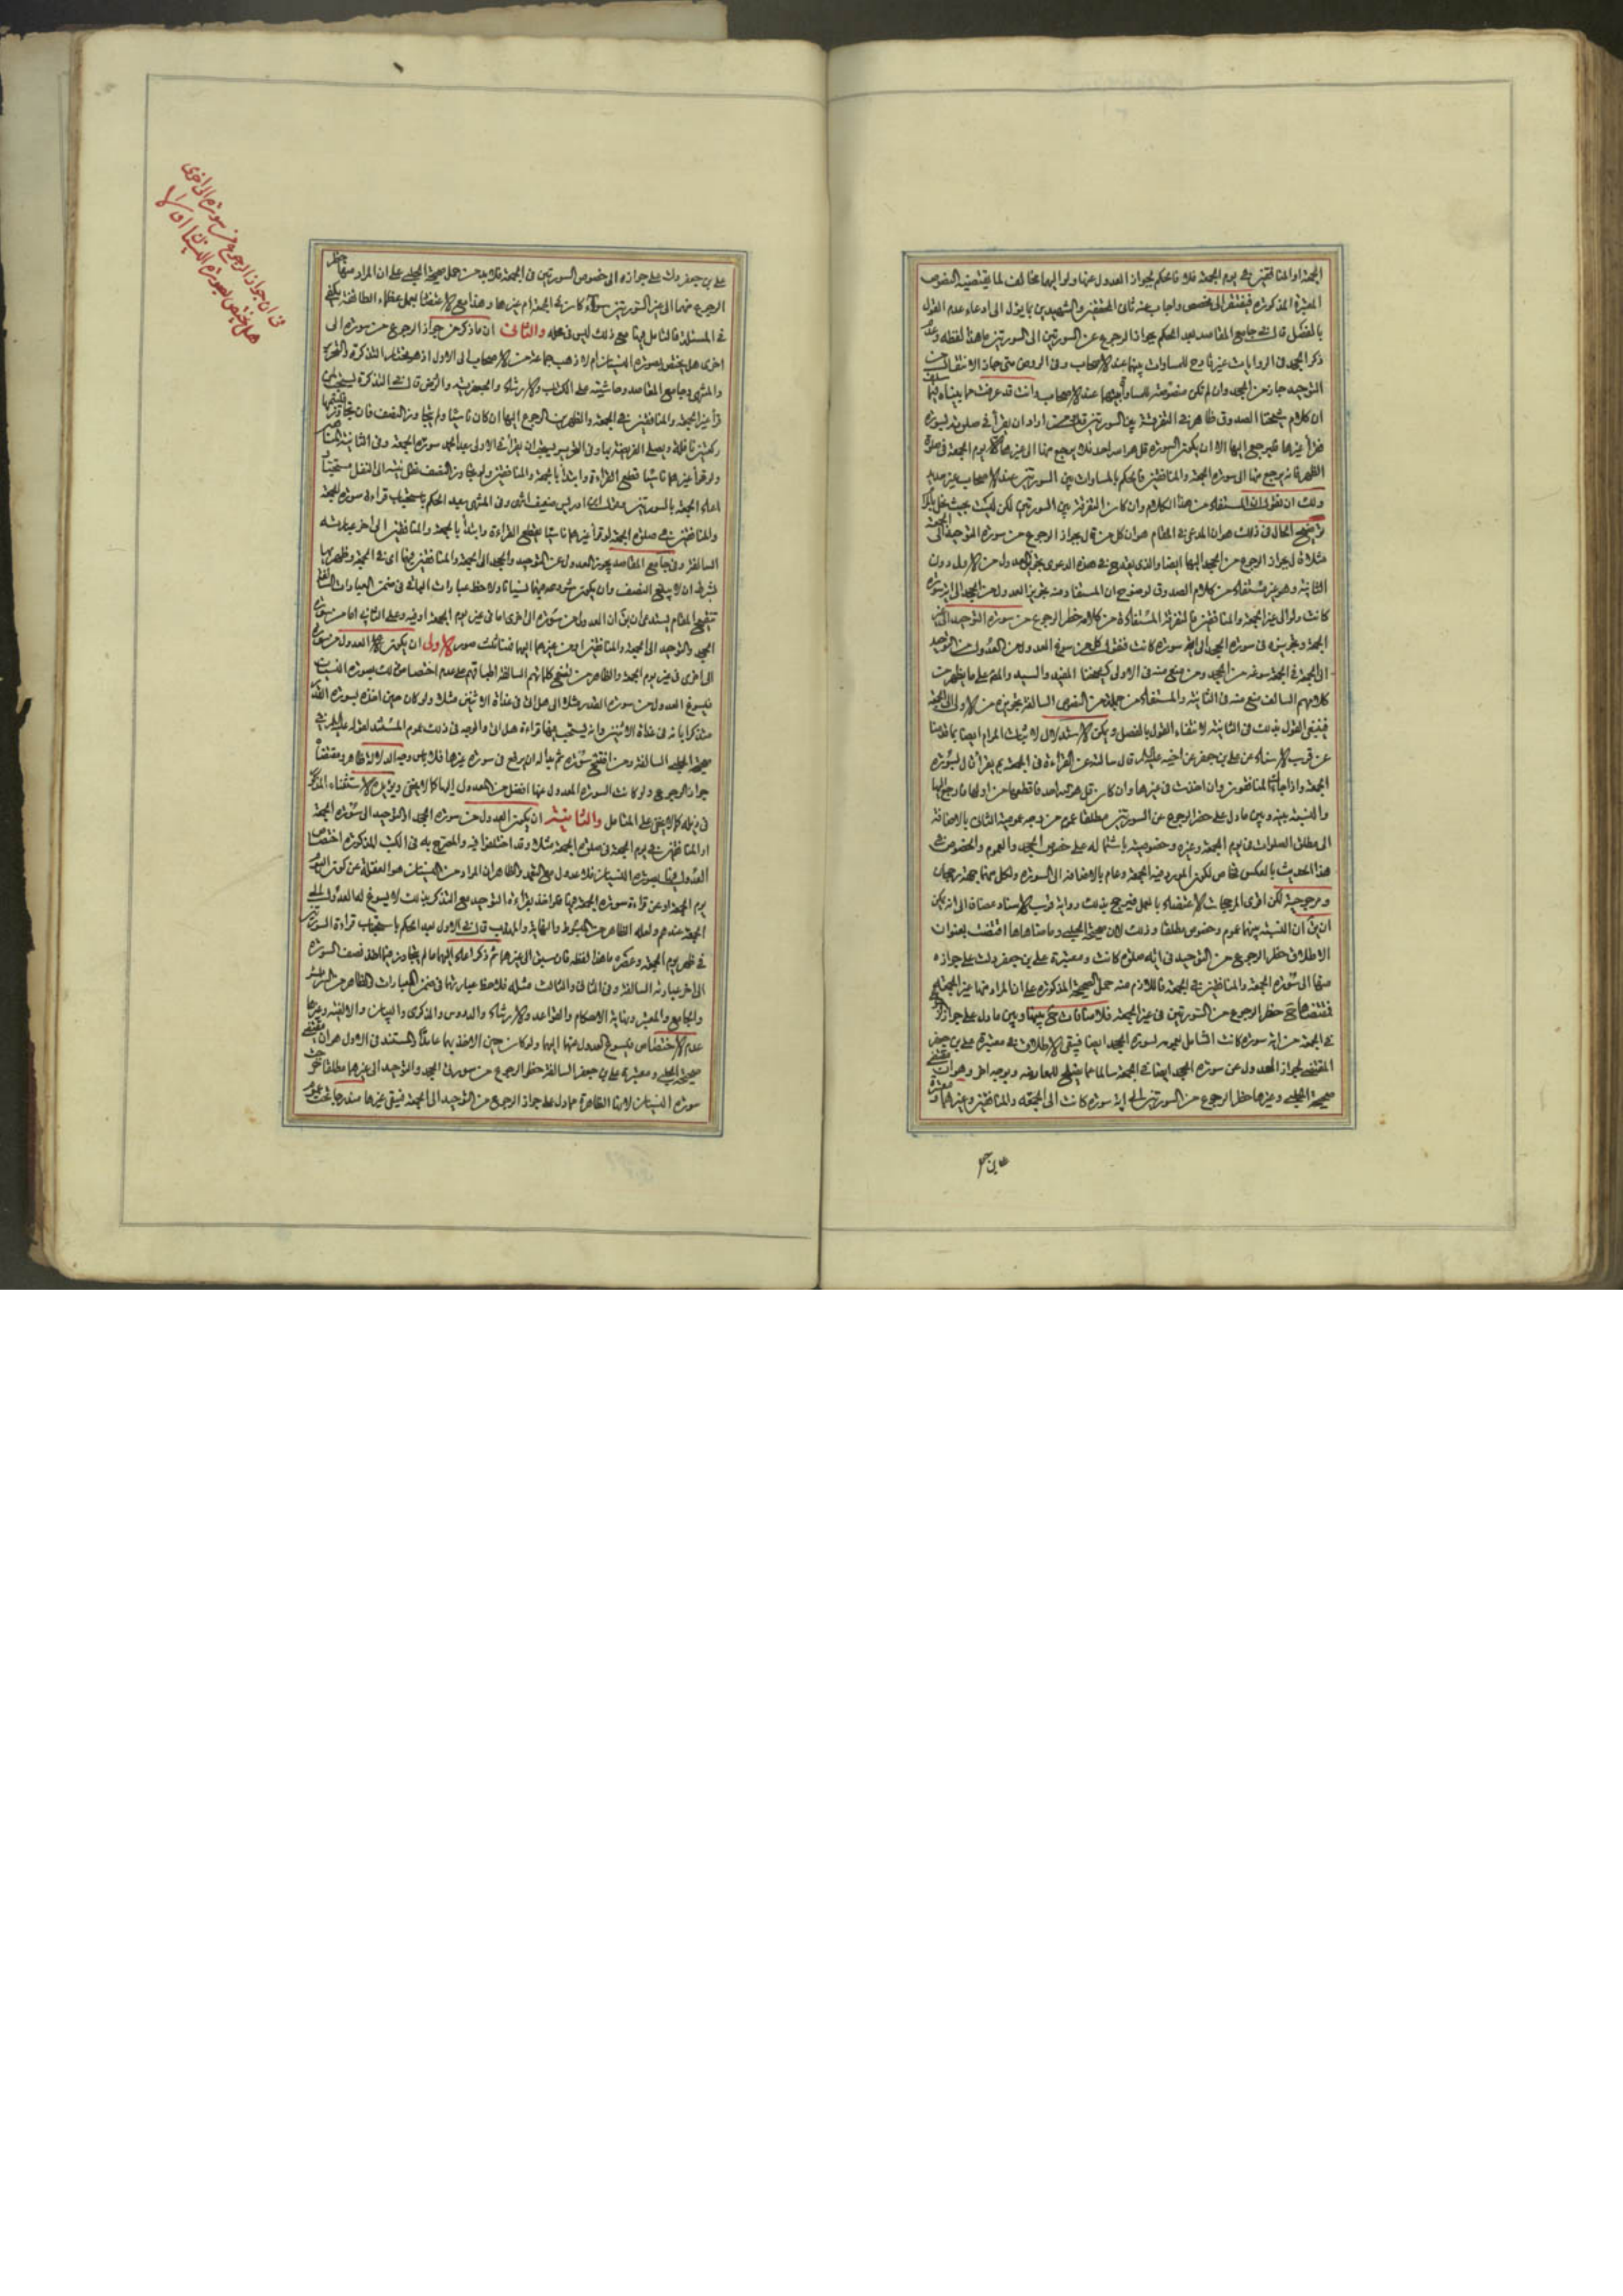 الجمعة او المنافقين في يوم الجمعة فلا فالحكم بجواز العدول عنها ولو اليهما مخالف لما يقتضيه النصوص
المعتبرة المذكورة فيفتقر الى مخصص واجاب عنه ثاني المحققين والشهيدين بما يؤل الى ادعاء عدم القول
بالفصل قال في جامع المقاصد بعد الحكم بجواز الرجوع عن السورتين الى السورتين ما هذا لفظه
ذكر الجحد في الروايات غير قادح للمساوات بينهما عند الاصحاب وفي الروض متى جاز الانتقال من
التوحيد جاز من الجحد وان لم تكن منصوصة للمساواة بينهما عند الاصحاب وانت قد عرفت مما بيناه
ان كلام شيخنا الصدوق ظاهر في التفرقة بين السورتين اراد ان يقرأ في صلوته بسورة
فقرأ غيرها فليرجع اليها الا ان يكون السورة قل هو الله احد فلا يرجع منها الى غيرها الا يوم الجمعة في صلوة
الظهر فانه يرجع منها الى سورة الجمعة والمنافقين فالحكم بالمساوات بين السورتين عند الاصحاب غير سديد
ولك ان تقول ان المستفاد من هذا الكلام وان كان التفرقة بين السورتين لكن ليست بحيث
توضيح الحال في ذلك هو ان المدعى في المقام هو ان كل من قال بجواز الرجوع من سورة التوحيد الى الجمعة
مثلا قال بجواز الرجوع من الجحد اليها ايضا والذي يقدح في هذه الدعوى تجويز العدول من الاول دون
الثانية وهو غير مستفاد من كلام الصدوق لوضوح ان المستفاد منه تجويز العدول من الجحد الى اية سورة
كانت ولو الى غير الجمعة والمنافقين فالتفرقة المستفادة من كلامه حظر الرجوع عن سورة التوحيد الى غير
الجمعة وتجويزه في سورة الجحد الى اية سورة كانت فنقول كل من سوغ العدول من التوحيد
الى الجمعة في الجمعة سوغه من الجحد ومن منع منه في الاولى كشيخنا المفيد والسيد على ما يظهر من
كلامهم السالف منع منه في الثانية والمستفاد من جملة من النصوص السالفة تجويزه من الاولى الى الجمعة
فينبغي القول بذلك في الثانية لانتفاء القول بالفصل ويمكن الاستدلال لاثبات المرام ايضا بما قدمنا
عن قرب الاسناد عن علي بن جعفر عن اخيه عليه السلام قال سالته عن القراءة في الجمعة بم يقرأ قال بسورة
الجمعة واذا جاءك المنافقون وان اخذت في غيرها وان كان قل هو الله احد فاقطعها من اولها وارجع اليها
والنسبة بينه وبين ما دل على حظر الرجوع عن السورتين مطلقا عموم من وجه عمومية الثاني بالاضافة
الى مطلق الصلوات في يوم الجمعة وغيره وخصوصيته باشتماله على خصوص الجحد والعموم والخصوص في
هذا الحديث بالعكس خاص لكون المورد فيه الجمعة وعام بالاضافة الى السورة ولكل منهما جهة رجحان
ومرجوحية لكن اقوى المرجحات الاعتضاد بالعمل فيرجح بذلك رواية قرب الاسناد مضافا الى انه يمكن
ان يقال ان النسبة بينهما عموم وخصوص مطلقا وذلك لان صحيحة الحلبي وما ضاهاها اقتضت بعنوان
الاطلاق حظر الرجوع من التوحيد في اية صلوة كانت ومعتبرة علي بن جعفر دلت على جوازه
منها الى سورة الجمعة والمنافقين في الجمعة فاللازم منه حمل الصحيحة المذكورة على ان المراد منها غير الجمعة
فمقتضاها حظر الرجوع من السورتين في غير الجمعة فلا منافات بينها وبين ما دل على جوازه
في الجمعة من اية سورة كانت الشامل بعمومه لسورة الجحد ايضا فيبقى الاطلاق في معتبرة علي بن جعفر
المقتضي لجواز العدول عن سورة الجحد ايضا في الجمعة سالما عما يصلح للمعارضة وبوجه اخر وهو ان مقتضى
صحيحة الحلبي وغيرها حظر الرجوع من السورتين الى اية سورة كانت الى الجمعة والمنافقين وغيرهما ومعتبرة
علي بن جعفر دلت على جوازه الى خصوص السورتين في الجمعة فلا بد من حمل صحيحة الحلبي على ان المراد منها حظر
الرجوع عنهما الى غير السورتين سواء كان في الجمعة ام غيرها وهذا مع الاعتضاد بعمل عظماء الطائفة يكفي
في المسئلة فالتامل فيها مع ذلك ليس في محله والثاني ان ما ذكر من جواز الرجوع من سورة الى
اخرى هل يختص بصورة النسيان ام لا ذهب جماعة من الاصحاب الى الاول اذ هو مختار التذكرة والتحرير
والمنتهى وجامع المقاصد وحاشيته على الكتاب والارشاد والجعفرية والروض قال في التذكرة يستحب لمن
قرأ غير الجمعة والمنافقين في الجمعة والظهرين الرجوع اليهما ان كان ناسيا ولم يتجاوز النصف فان تجاوز
ركعتين نافلة ويصلي الفريضة بهما وفي التحرير يستحب ان يقرأ في الاولى بعد الحمد سورة الجمعة وفي الثانية المنافقين
ولو قرأ غيرهما ناسيا قطع القراءة وابتدأ بالجمعة والمنافقين ولو تجاوز النصف نقل نيته الى النفل مستحبا
اعاد الجمعة بالسورتين وفي المنتهى بعد الحكم باستحباب قراءة سورة الجمعة
والمنافقين في صلوة الجمعة لو قرأ غيرهما ناسيا يقطع القراءة وابتدأ بالجمعة والمنافقين الى اخر عبارته
السالفة وفي جامع المقاصد يجوز العدول عن التوحيد والجحد الى الجمعة والمنافقين في الجمعة وظهرها
بشرط ان لا يبلغ النصف وان يكون شروعه فيهما نسيانا ولاحظ عبارات الباقي في ضمن العبارات السالفة
تنقيح المقام يستدعي ان يقال ان العدول من سورة الى اخرى اما في غير يوم الجمعة او فيه وعلى الثاني اما من سورة
الجحد والتوحيد الى الجمعة والمنافقين او من غيرهما اليهما فهنالك صور الاولى ان يكون العدول من سورة
الى اخرى في غير يوم الجمعة والظاهر من تتبع كلماتهم السالفة اطباقهم على عدم اختصاص ذلك بصورة النسيان
فيسوغ العدول من سورة القدر مثلا الى هل اتى في غداة الاثنين مثلا ولو كان حين اخذه بسورة القدر
متذكرا بانه في غداة الاثنين وانه يستحب فيها قراءة هل اتى والوجه في ذلك عموم المستند لقوله عليه السلام في
صحيحة الحلبي السالفة ومن افتتح سورة ثم بدا له ان يرجع في سورة غيرها فلا باس وجه الدلالة ظاهر ومقتضاه
جواز الرجوع ولو كانت السورة المعدول عنها افضل من المعدول اليها كما لا يخفى ويؤيده الاستثناء المذكور
في ذيله كما لا يخفى على المتامل والثانية ان يكون العدول من سورة الجحد او التوحيد الى سورة الجمعة
او المنافقين في يوم الجمعة في صلوة الجمعة مثلا وقد اختلفوا فيه والمصرح به في الكتب المذكورة اختصاص
العدول بصورة النسيان فلا عدول مع التعمد والظاهر ان المراد من النسيان هو الغفلة عن كون اليوم
يوم الجمعة او عن قراءة سورة الجمعة فيها فلو اخذ بقراءة التوحيد مع التذكر بذلك لا يسوغ له العدول الى
الجمعة عندهم ولعله الظاهر من المبسوط والنهاية والمهذب قال في الاول بعد الحكم باستحباب قراءة السورتين
في ظهر يوم الجمعة وعصره ما هذا لفظه فان سبق الى غيرهما ثم ذكر اعاد اليهما ما لم يتجاوز نصف السورة
الى اخر عبارته السالفة وفي الثاني والثالث مثله فلاحظ عبارتها في ضمن العبارات والظاهر من السرائر
والجامع والمعتبر ونهاية الاحكام والقواعد والارشاد والدروس والذكرى والبيان والالفية وغيرها
عدم الاختصاص فيسوغ العدول عنها اليهما ولو كان حين الاخذ بهما عامدا والمستند في الاول هو ان مقتضى
صحيحة الحلبي ومعتبرة علي بن جعفر السالفة حظر الرجوع من سورتي الجحد والتوحيد الى غيرهما مطلقا خرج
سورة النسيان لانها الظاهرة مما دل على جواز الرجوع من التوحيد الى الجمعة فيبقى غيرها مندرجا تحت عموم
في ان جواز الرجوع من سورة الى اخرى
هل يختص بصورة النسيان ام لا
علي بن جعفر